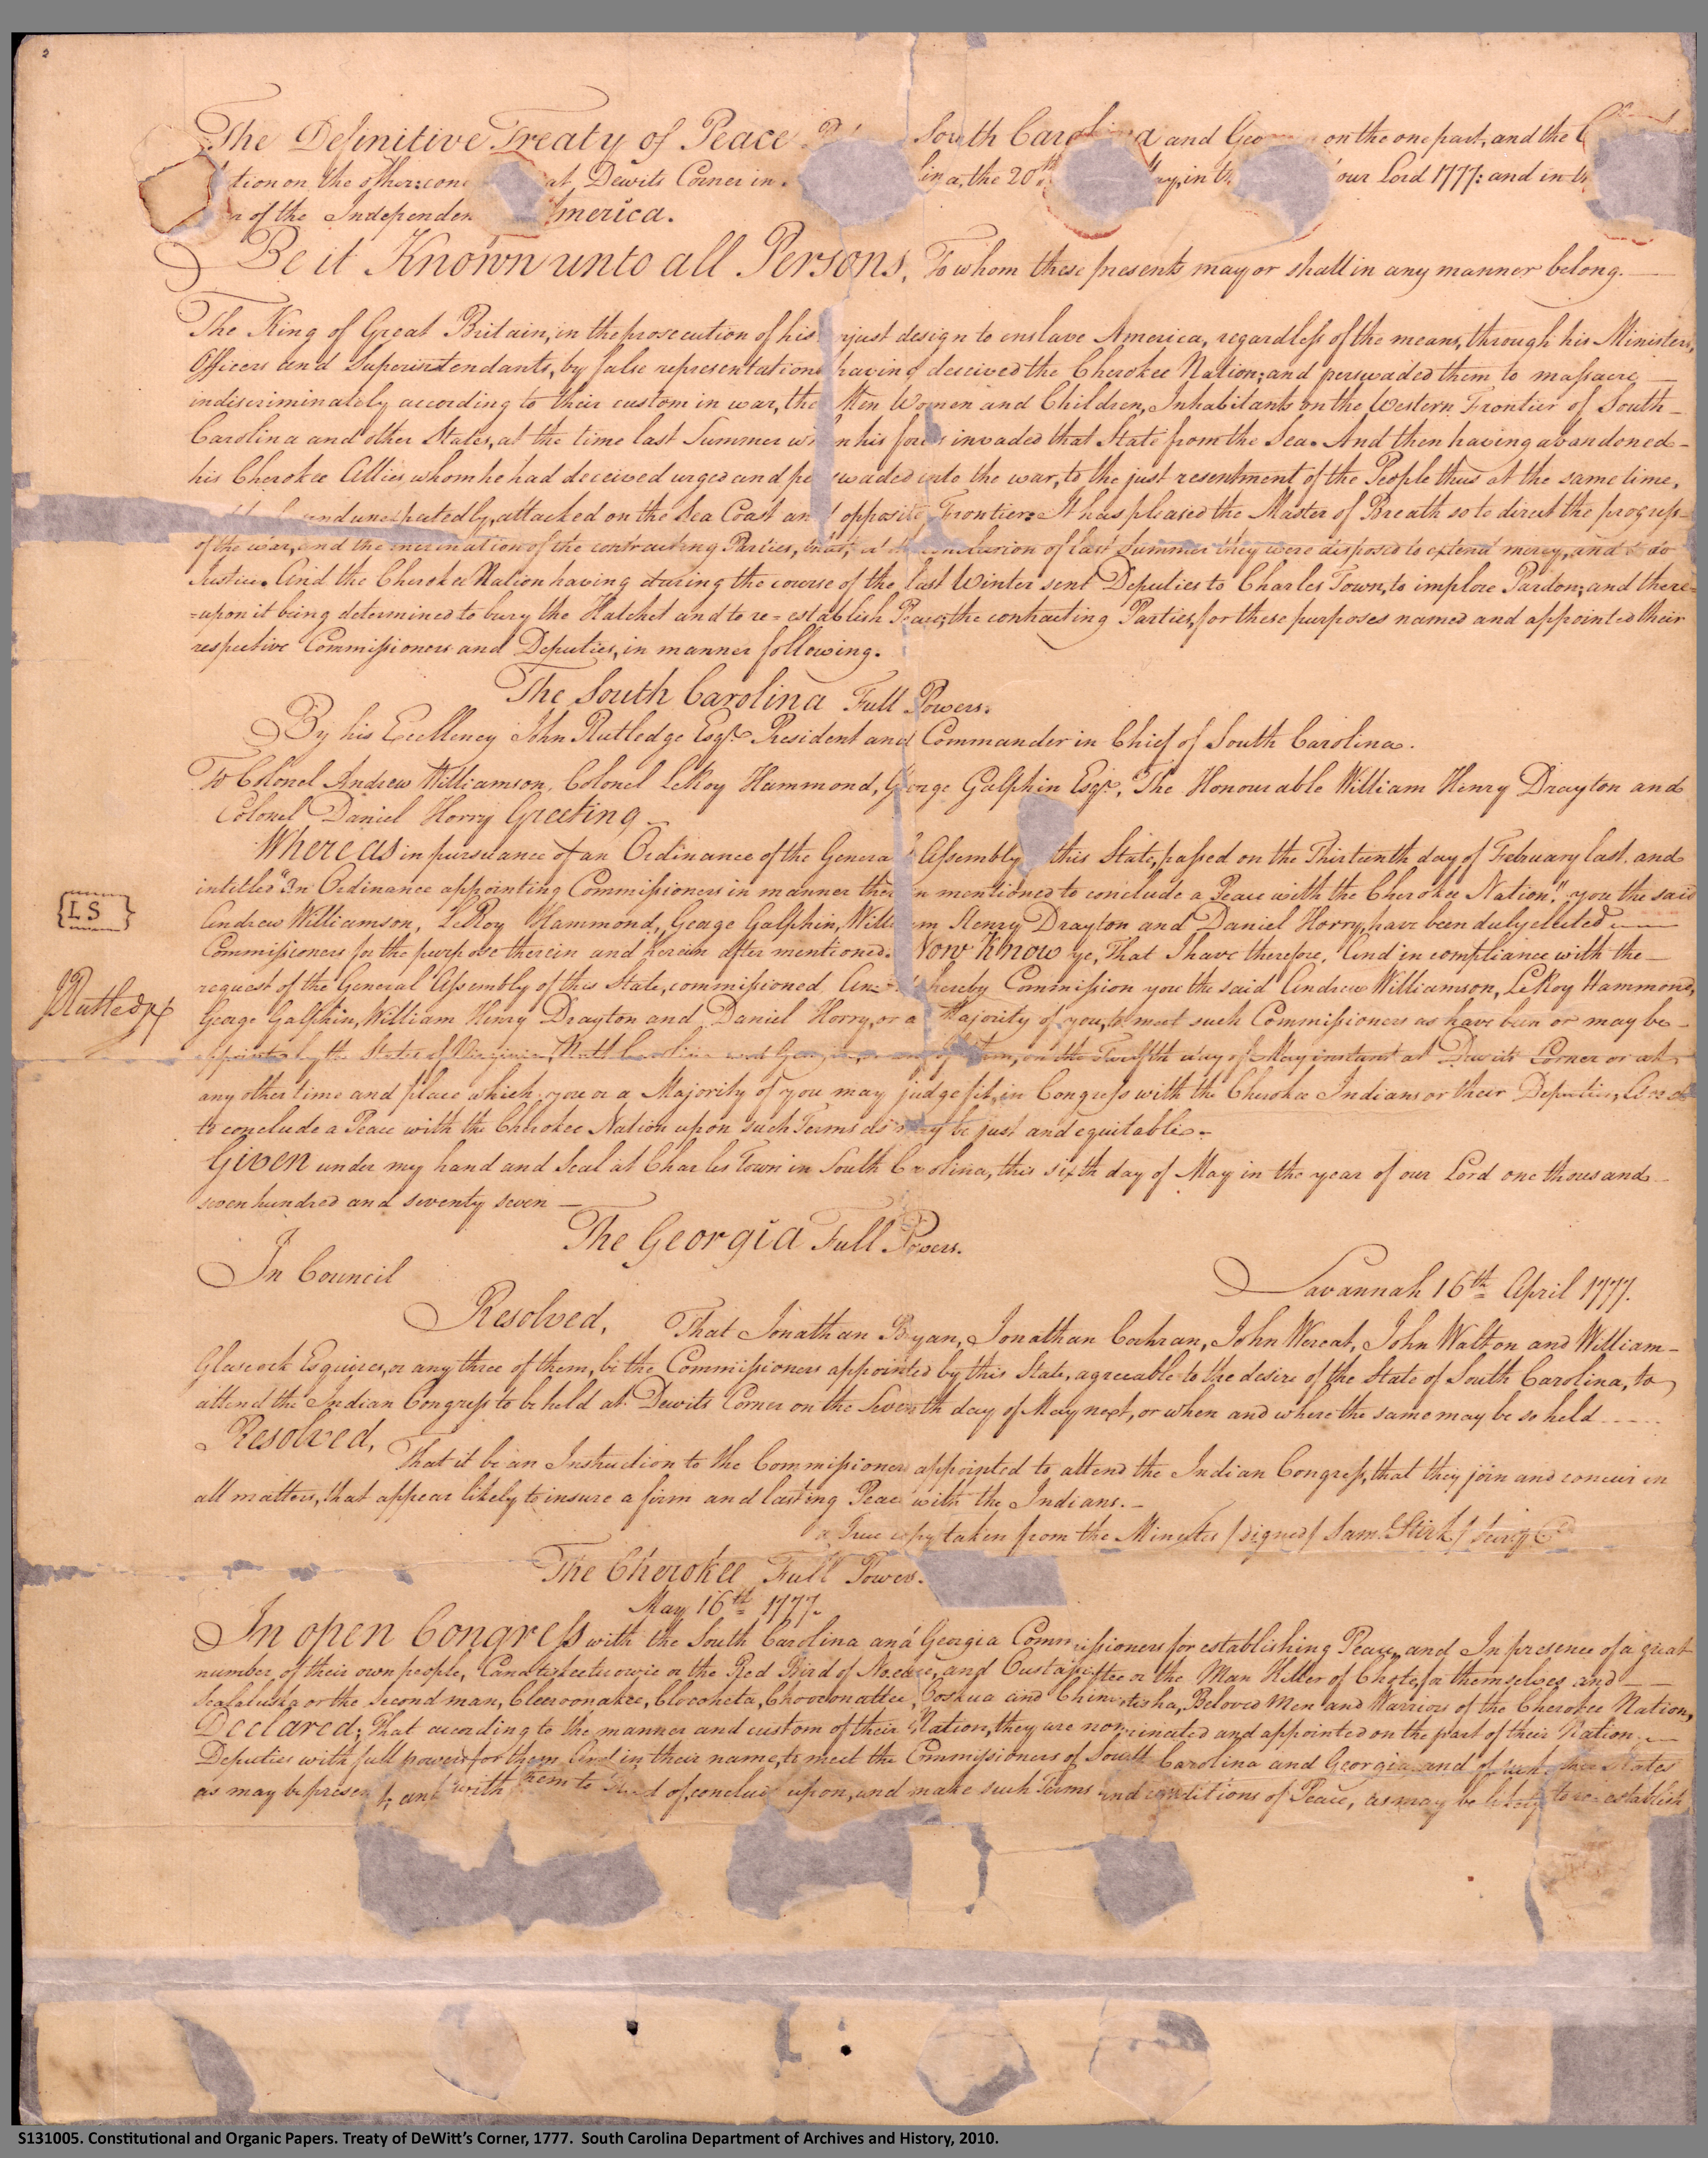 The Definitive Treaty of Peace South Carolina and on the one part, and the
tion on the other: at Dewits Corner in the 20th in our Lord 1777: and in
of the America.
Be it Known unto all Persons, To whom these presents may or shall in any manner belong.
The King of Great Britain, in the prosecution of his design to enslave America, regardless of the means, through his Ministers,
Officers and Superintendants, by false representations having deceived the Cherokee Nation; and perswaded them to massacre
indiscriminately according to their custom in war, the Men Women and Children, Inhabitants on the Western Frontier of South-
Carolina and other States, at the time last Summer when his forces invaded that State from the Sea. And then having abandoned-
his Cherokee Allies whom he had deceived urged and perswaded into the war, to the just resentment of the People thus at the same time,
and unexpectedly, attacked on the Sea Coast and opposite Frontier: It has pleased the Master of Breath so to direct the progress-
of the war, and the inclination of the contracting Parties, that, at the conclusion of last Summer they were disposed to extend mercy, and to do
Justice. And the Cherokee Nation having during the course of the last Winter sent Deputies to Charles Town, to implore Pardon; and there=
=upon it being determined to bury the Hatchet and to re=establish Peace; the contracting Parties, for these purposes named and appointed their
respective Commissioners and Deputies, in manner following.
The South Carolina Full Powers.
By his Excellency John Rutledge Esqr. President and Commander in Chief of South Carolina.
To Colonel Andrew Williamson, Colonel LeRoy Hammond, George Galphin Esqr., The Honourable William Henry Drayton and
Colonel Daniel Horry Greeting
Whereas in pursuance of an Ordinance of the General Assembly this State, passed on the Thirteenth day of February last, and
intitled "An Ordinance appointing Commissioners in manner therein mentioned to conclude a Peace with the Cherokee Nation" you the said
{LS}
Andrew Williamson, LeRoy Hammond, George Galphin, William Henry Drayton and Daniel Horry, have been duly elected
Commissioners for the purpose therein and herein after mentioned. Now Know ye, That I have therefore, And in compliance with the
request of the General Assembly of this State, commissioned, And hereby Commission you the said Andrew Williamson, LeRoy Hammond,
JRutledge
George Galphin, William Henry Drayton and Daniel Horry, or a Majority of you, to meet such Commissioners as have been or may be
appointed by the States of Virginia, North Carolina and Georgia, or any of them, on the Twelfth day of May instant at Dewits Corner or at
any other time and place which you or a Majority of you may judge fit, in Congress with the Cherokee Indians or their Deputies, And
to conclude a Peace with the Cherokee Nation upon such Terms as may be just and equitable.
Given under my hand and Seal at Charles Town in South Carolina, this sixth day of May in the year of our Lord one thousand
seven hundred and seventy seven
The Georgia Full Powers.
In Council
Savannah 16th April 1777.
Resolved, That Jonathan Bryan, Jonathan Cochran, John Wereat, John Walton and William-
Glascock Esquires, or any three of them, be the Commissioners appointed by this State, agreeable to the desire of the State of South Carolina, to
attend the Indian Congress to be held at Dewits Corner on the Seventh day of May next, or when and where the same may be so held
Resolved, That it be an Instruction to the Commissioners appointed to attend the Indian Congress, that they join and concur in
all matters, that appear likely to insure a firm and lasting Peace with the Indians.
a True copy taken from the Minutes /signed/ Sam. Stirk/
The Cherokee Full Powers.
May 16th 1777.
In open Congress with the South Carolina and Georgia Commissioners for establishing Peace, and In presence of a great
number of their own people, or the Red Bird of and or the Man Killer of for themselves and
or the Second man, and Beloved Men and Warriors of the Cherokee Nation,
Declared; That according to the manner and custom of their Nation, they are nominated and appointed on the part of their Nation
Deputies with full powers for them And in their name, to meet the Commissioners of South Carolina and Georgia and of such other States
as may be present, and with them to of, conclude upon, and make such Terms and conditions of Peace, as may be likely to re=establish
S131005. Constitutional and Organic Papers. Treaty of DeWitt's Corner, 1777. South Carolina Department of Archives and History, 2010.